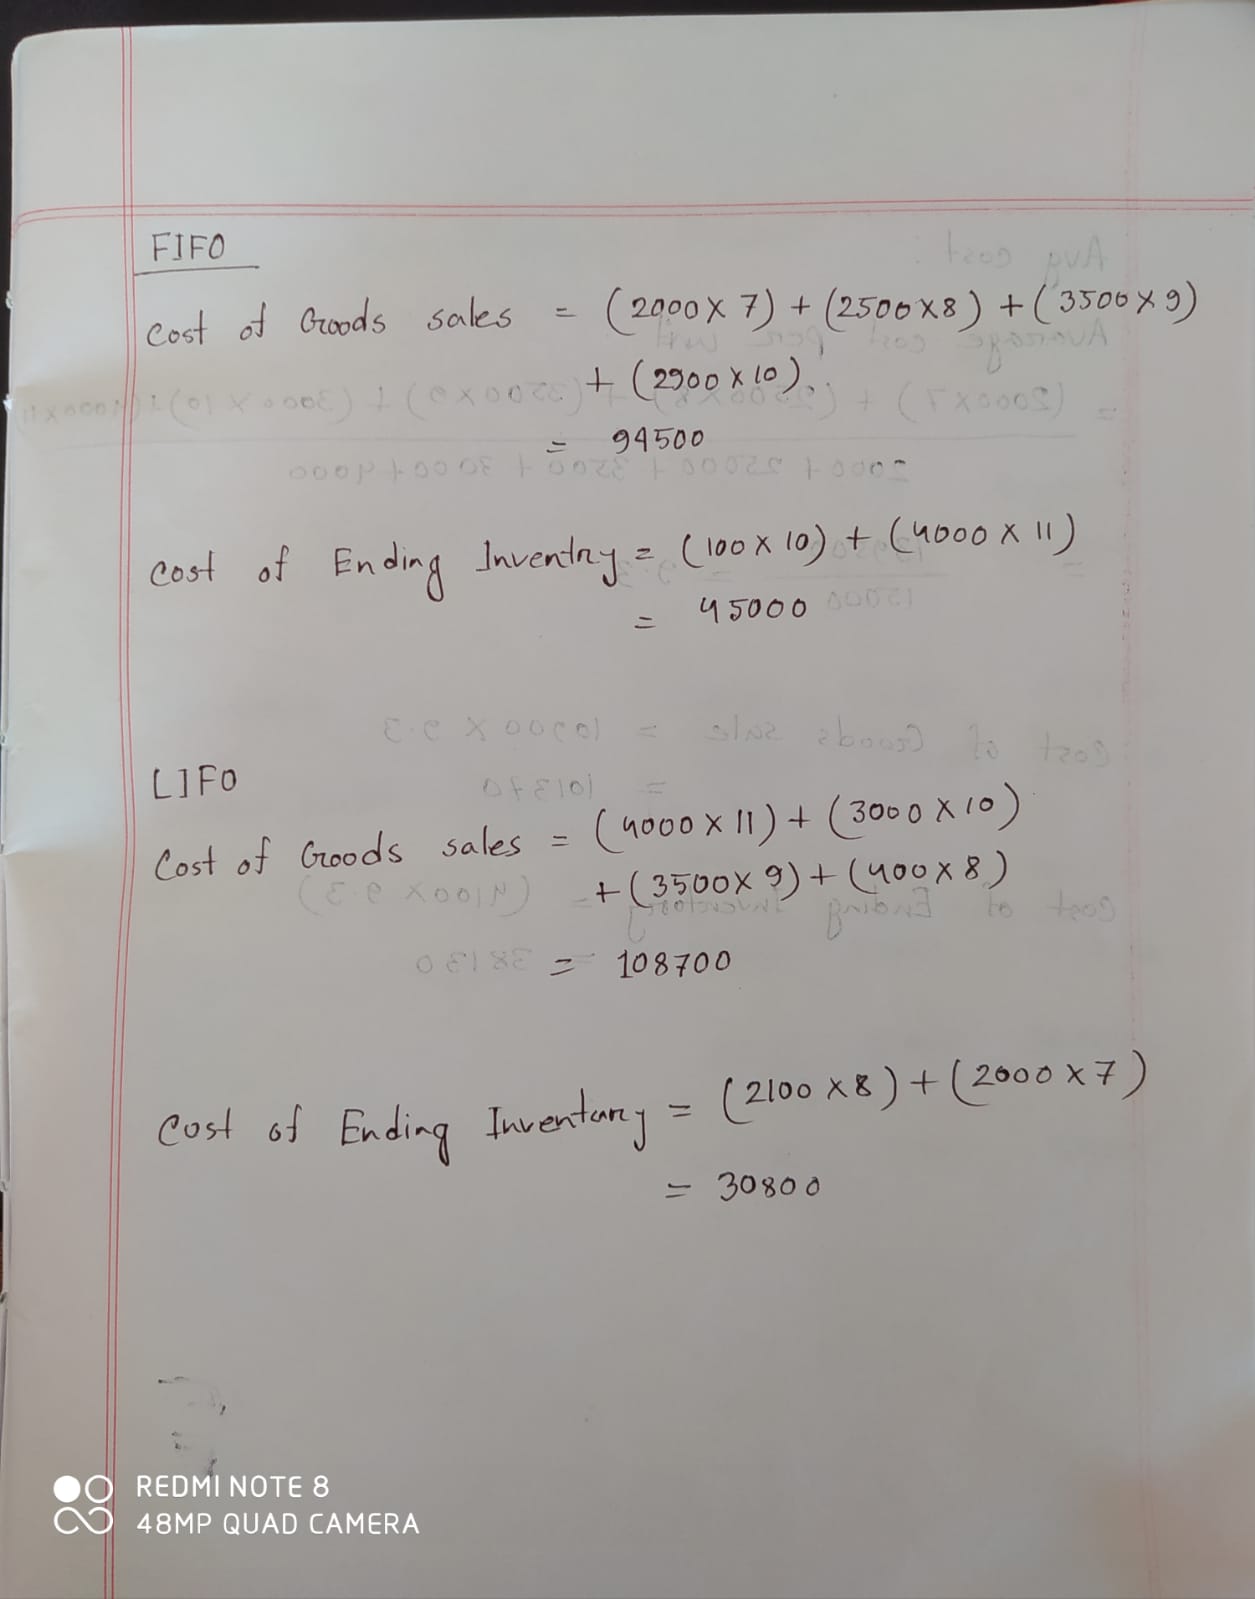 FIFO
Cost of Goods sales = (2000 X 7) + (2500 X 8) + (3500 X 9)
+ (2900 X 10)
= 94500
Cost of Ending Inventry = (100 X 10) + (4000 X 11)
= 45000
LIFO
Cost of Goods sales = (4000 X 11) + (3000 X 10)
+ (3500 X 9) + (400 X 8)
= 108700
Cost of Ending Inventary = (2100 X 8) + (2000 X 7)
= 30800
REDMI NOTE 8
48MP QUAD CAMERA